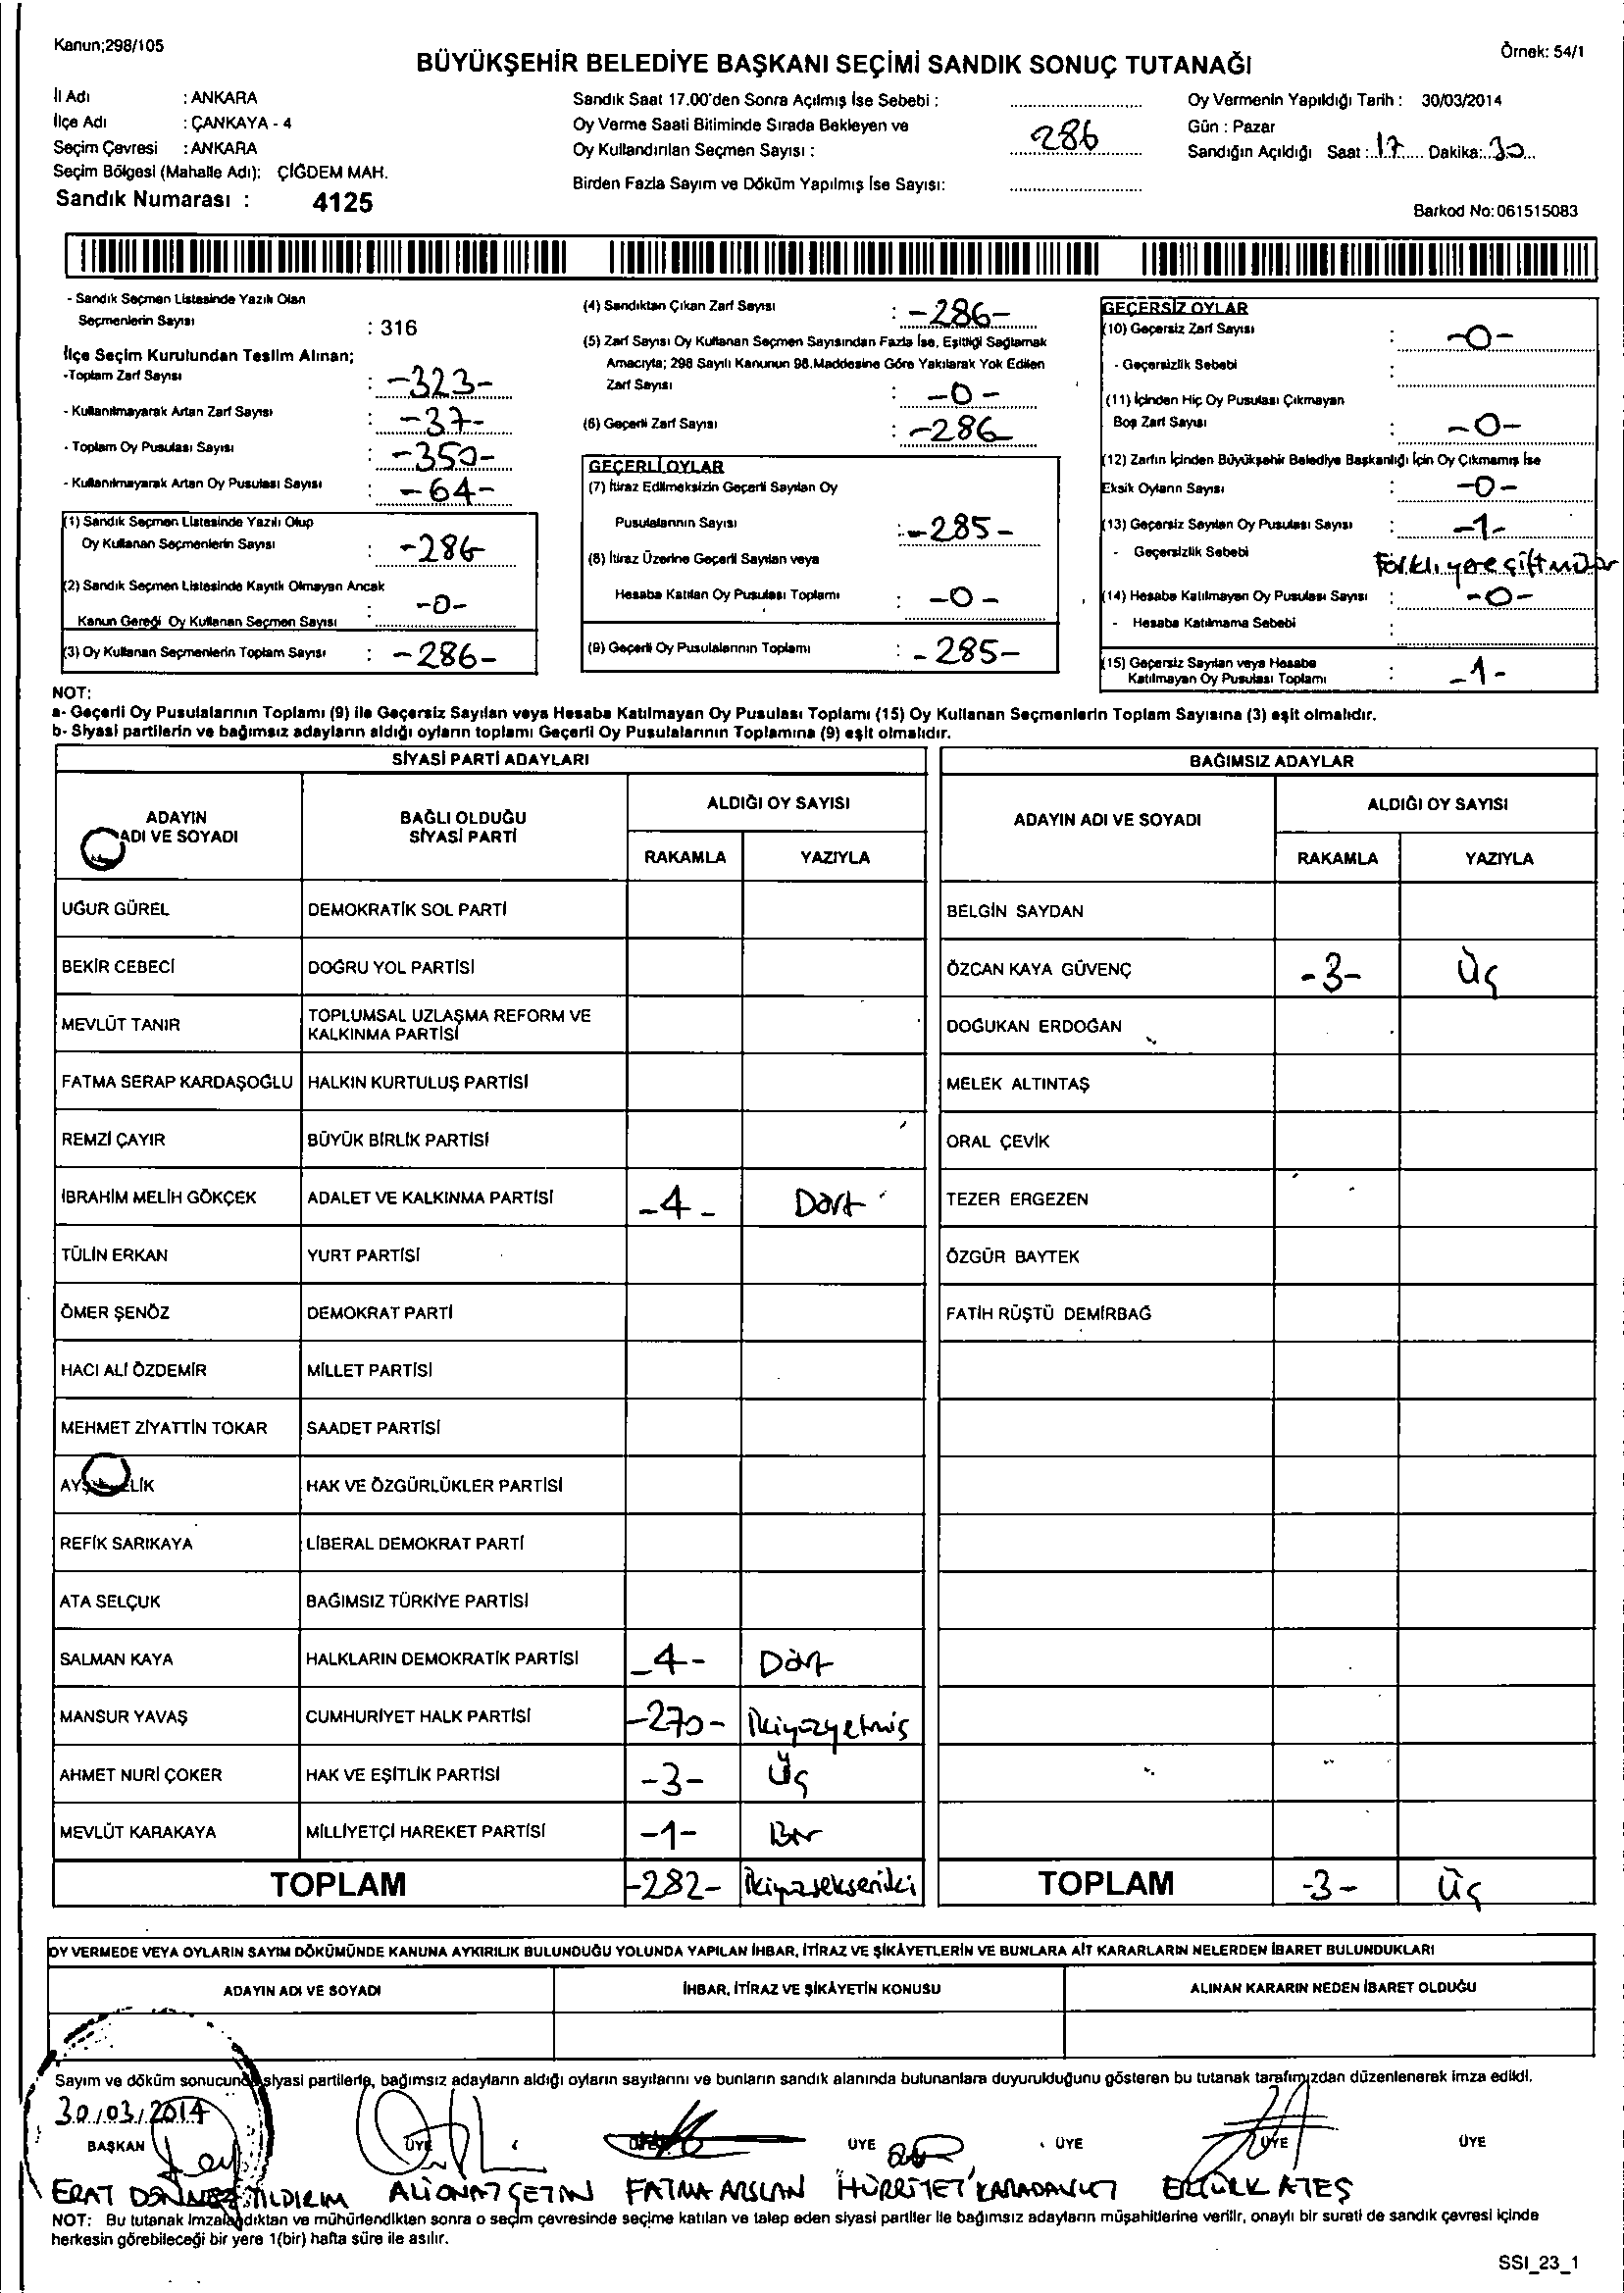 Kanun;298/105
Örnek: 54/1
BÜYÜKŞEHİR BELEDİYE BAŞKANI SEÇİMİ SANDIK SONUÇ TUTANAĞI
İl Adı : ANKARA
İlçe Adı : ÇANKAYA - 4
Seçim Çevresi : ANKARA
Seçim Bölgesi (Mahalle Adı): ÇİĞDEM MAH.
Sandık Numarası : 4125
Sandık Saat 17.00'den Sonra Açılmış İse Sebebi :
Oy Verme Saati Bitiminde Sırada Bekleyen ve
Oy Kullandırılan Seçmen Sayısı : 286
Birden Fazla Sayım ve Döküm Yapılmış İse Sayısı:
Oy Vermenin Yapıldığı Tarih : 30/03/2014
Gün : Pazar
Sandığın Açıldığı Saat : 17 Dakika: 30
Barkod No:061515083
- Sandık Seçmen Listesinde Yazılı Olan
Seçmenlerin Sayısı : 316
İlçe Seçim Kurulundan Teslim Alınan;
-Toplam Zarf Sayısı : -323-
- Kullanılmayarak Artan Zarf Sayısı : -37-
- Toplam Oy Pusulası Sayısı : -350-
- Kullanılmayarak Artan Oy Pusulası Sayısı : -64-
(1) Sandık Seçmen Listesinde Yazılı Olup
Oy Kullanan Seçmenlerin Sayısı : -286-
(2) Sandık Seçmen Listesinde Kayıtlı Olmayan Ancak
Kanun Gereği Oy Kullanan Seçmen Sayısı : -0-
(3) Oy Kullanan Seçmenlerin Toplam Sayısı : -286-
(4) Sandıktan Çıkan Zarf Sayısı : -286-
(5) Zarf Sayısı Oy Kullanan Seçmen Sayısından Fazla İse, Eşitliği Sağlamak
Amacıyla; 298 Sayılı Kanunun 98.Maddesine Göre Yakılarak Yok Edilen
Zarf Sayısı : -0-
(6) Geçerli Zarf Sayısı : -286
GEÇERLİ OYLAR
(7) İtiraz Edilmeksizin Geçerli Sayılan Oy
Pusulalarının Sayısı : -285-
(8) İtiraz Üzerine Geçerli Sayılan veya
Hesaba Katılan Oy Pusulası Toplamı : -0-
(9) Geçerli Oy Pusulalarının Toplamı : -285-
GEÇERSİZ OYLAR
(10) Geçersiz Zarf Sayısı : -0-
- Geçersizlik Sebebi :
(11) İçinden Hiç Oy Pusulası Çıkmayan
Boş Zarf Sayısı : -0-
(12) Zarfın İçinden Büyükşehir Belediye Başkanlığı İçin Oy Çıkmamış İse
Eksik Oyların Sayısı : -0-
(13) Geçersiz Sayılan Oy Pusulası Sayısı : -1-
- Geçersizlik Sebebi Farklı yere çift mühür
(14) Hesaba Katılmayan Oy Pusulası Sayısı : -0-
- Hesaba Katılmama Sebebi :
(15) Geçersiz Sayılan veya Hesaba
Katılmayan Oy Pusulası Toplamı : -1-
NOT:
a- Geçerli Oy Pusulalarının Toplamı (9) ile Geçersiz Sayılan veya Hesaba Katılmayan Oy Pusulası Toplamı (15) Oy Kullanan Seçmenlerin Toplam Sayısına (3) eşit olmalıdır.
b- Siyasi partilerin ve bağımsız adayların aldığı oyların toplamı Geçerli Oy Pusulalarının Toplamına (9) eşit olmalıdır.
SİYASİ PARTİ ADAYLARI
ADAYIN ADI VE SOYADI BAĞLI OLDUĞU SİYASİ PARTİ ALDIĞI OY SAYISI
RAKAMLA YAZIYLA
UĞUR GÜREL DEMOKRATİK SOL PARTİ
BEKİR CEBECİ DOĞRU YOL PARTİSİ
MEVLÜT TANIR TOPLUMSAL UZLAŞMA REFORM VE KALKINMA PARTİSİ
FATMA SERAP KARDAŞOĞLU HALKIN KURTULUŞ PARTİSİ
REMZİ ÇAYIR BÜYÜK BİRLİK PARTİSİ
İBRAHİM MELİH GÖKÇEK ADALET VE KALKINMA PARTİSİ -4- Dört
TÜLİN ERKAN YURT PARTİSİ
ÖMER ŞENÖZ DEMOKRAT PARTİ
HACI ALİ ÖZDEMİR MİLLET PARTİSİ
MEHMET ZİYATTİN TOKAR SAADET PARTİSİ
HAK VE ÖZGÜRLÜKLER PARTİSİ
REFİK SARIKAYA LİBERAL DEMOKRAT PARTİ
ATA SELÇUK BAĞIMSIZ TÜRKİYE PARTİSİ
SALMAN KAYA HALKLARIN DEMOKRATİK PARTİSİ -4- Dört
MANSUR YAVAŞ CUMHURİYET HALK PARTİSİ -270- İkiyüzyetmiş
AHMET NURİ ÇOKER HAK VE EŞİTLİK PARTİSİ -3- Üç
MEVLÜT KARAKAYA MİLLİYETÇİ HAREKET PARTİSİ -1- Bir
TOPLAM -282- İkiyüzsekseniki
BAĞIMSIZ ADAYLAR
ADAYIN ADI VE SOYADI ALDIĞI OY SAYISI
RAKAMLA YAZIYLA
BELGİN SAYDAN
ÖZCAN KAYA GÜVENÇ -3- Üç
DOĞUKAN ERDOĞAN
MELEK ALTINTAŞ
ORAL ÇEVİK
TEZER ERGEZEN
ÖZGÜR BAYTEK
FATİH RÜŞTÜ DEMİRBAĞ
TOPLAM -3- Üç
OY VERMEDE VEYA OYLARIN SAYIM DÖKÜMÜNDE KANUNA AYKIRILIK BULUNDUĞU YOLUNDA YAPILAN İHBAR, İTİRAZ VE ŞİKÂYETLERİN VE BUNLARA AİT KARARLARIN NELERDEN İBARET BULUNDUKLARI
ADAYIN ADI VE SOYADI İHBAR, İTİRAZ VE ŞİKÂYETİN KONUSU ALINAN KARARIN NEDEN İBARET OLDUĞU
Sayım ve döküm sonucunda siyasi partilerle, bağımsız adayların aldığı oyların sayılarını ve bunların sandık alanında bulunanlara duyurulduğunu gösteren bu tutanak tarafımızdan düzenlenerek imza edildi.
30/03/2014
BAŞKAN ÜYE ÜYE ÜYE ÜYE ÜYE
YILDIRIM ÇETİN FATMA ARSLAN HÜRRİYET ERTÜRK ATEŞ
NOT: Bu tutanak imzalandıktan ve mühürlendikten sonra o seçim çevresinde seçime katılan ve talep eden siyasi partiler ile bağımsız adayların müşahitlerine verilir, onaylı bir sureti de sandık çevresi içinde
herkesin görebileceği bir yere 1(bir) hafta süre ile asılır.
SSI_23_1